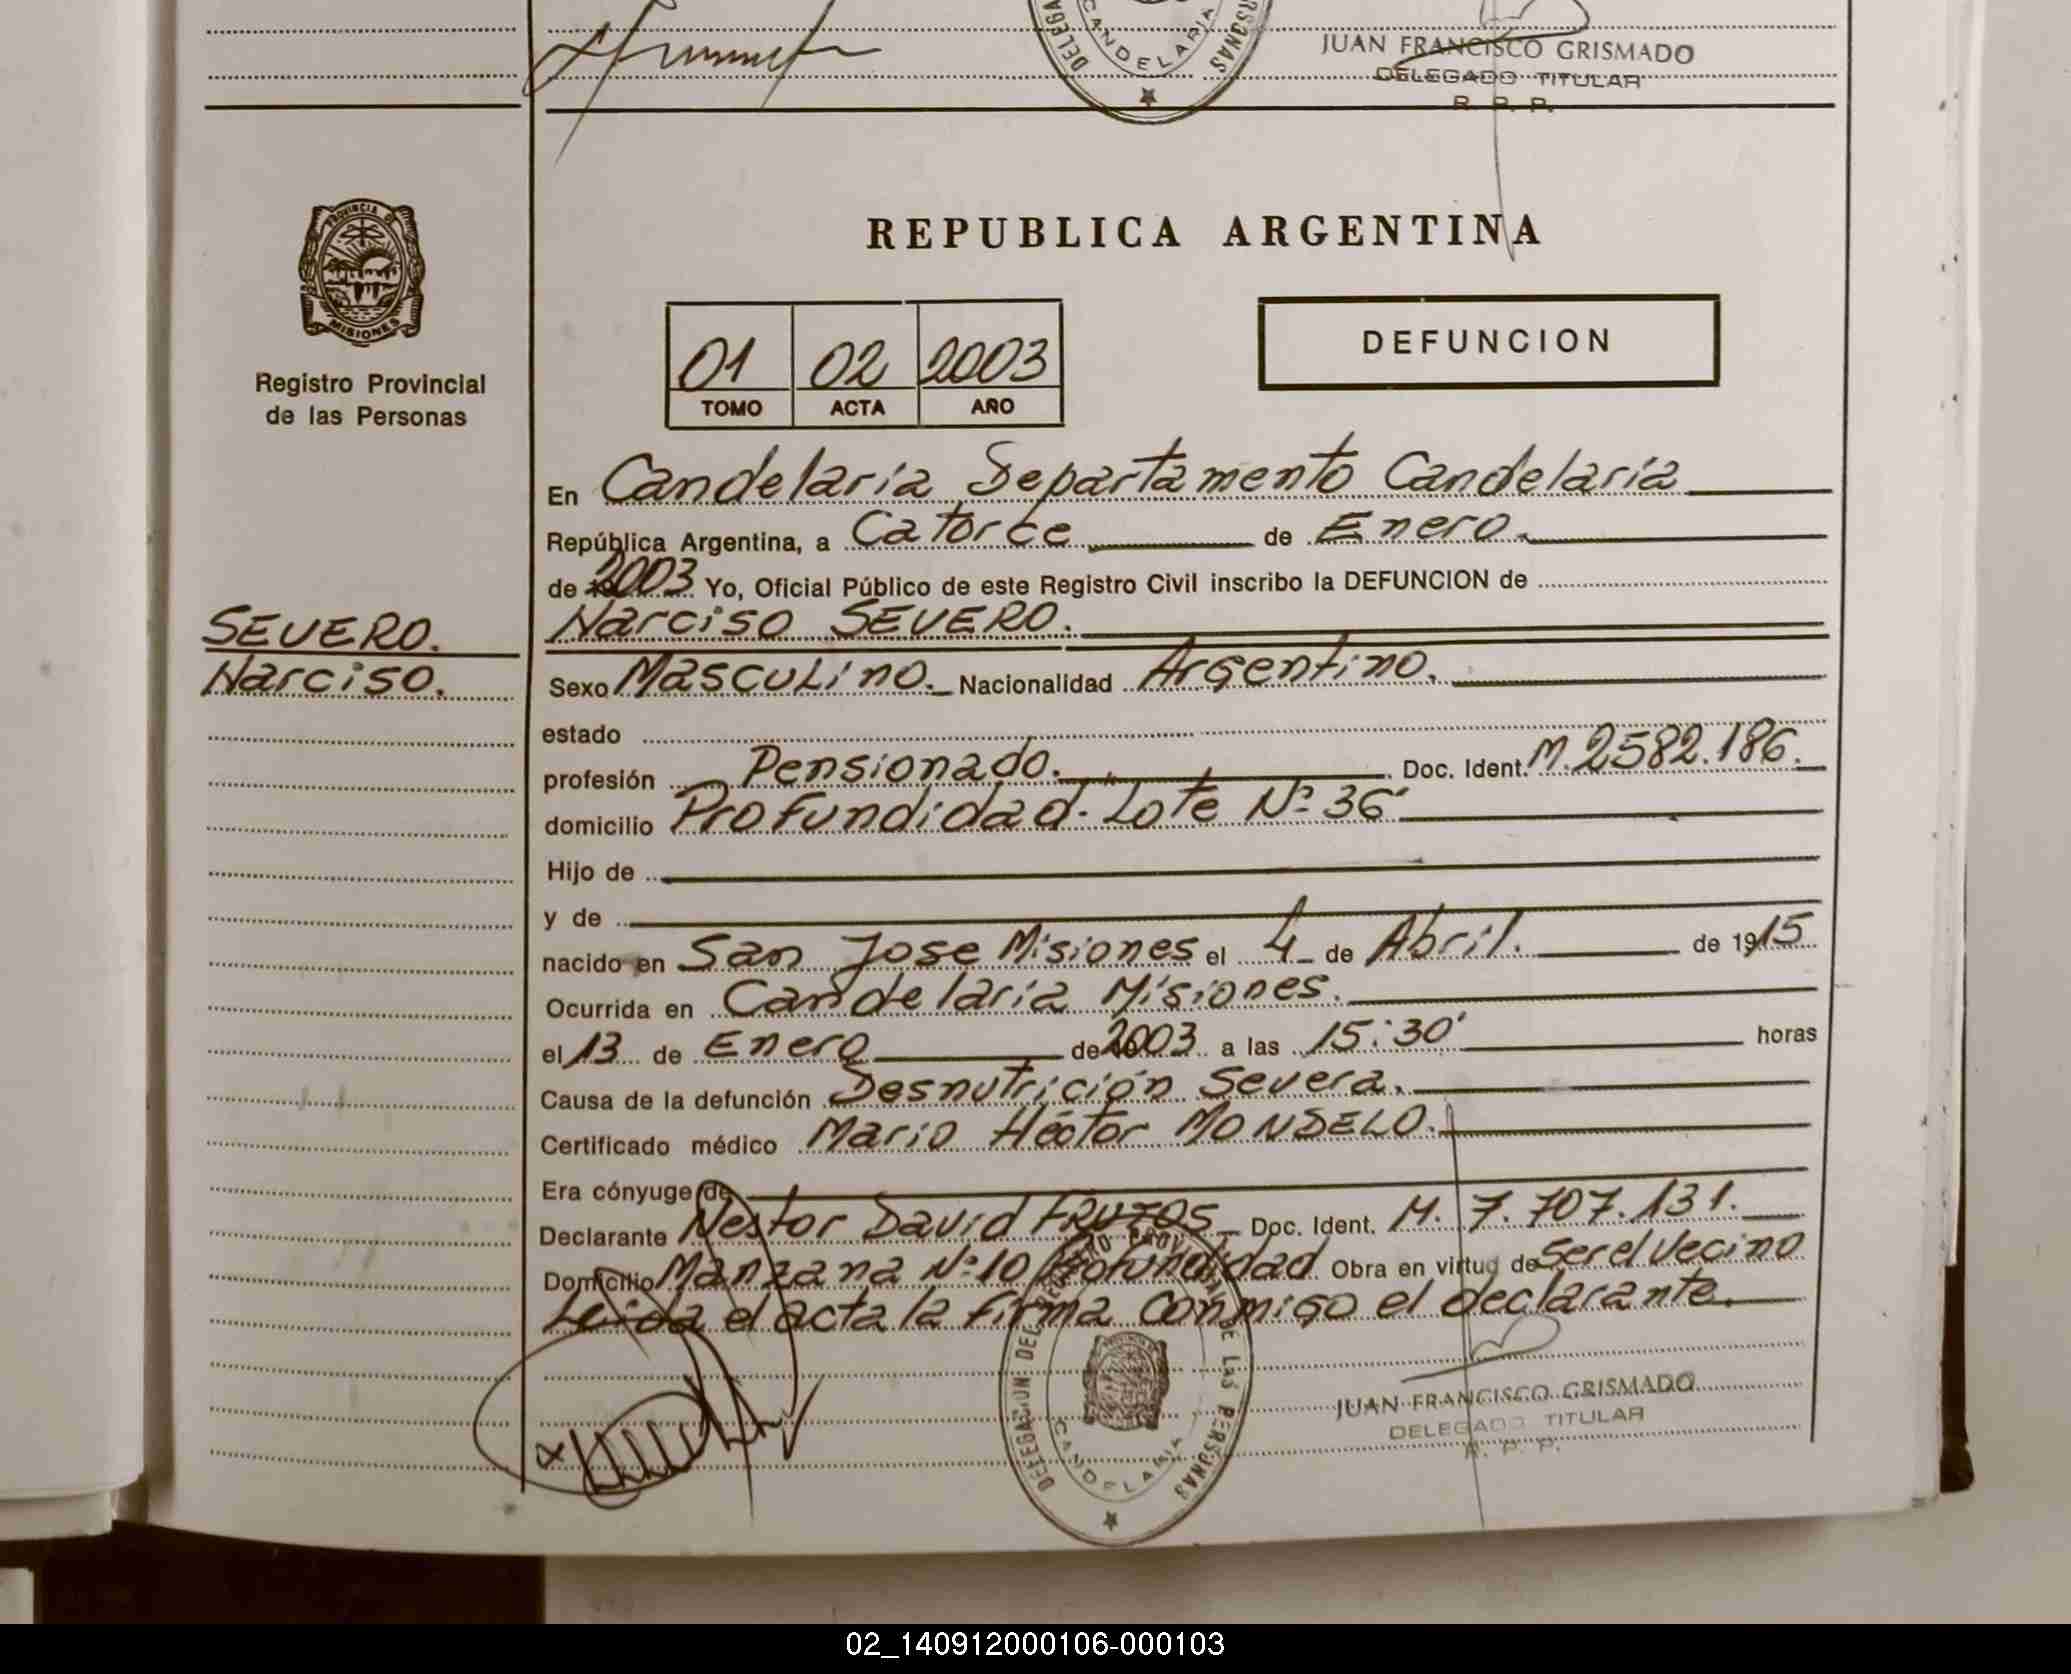 DELEGA
CANDELARIA
RSONAS
JUAN FRANCISCO GRISMADO
DELEGADO TITULAR
R. P. P.
PROVINCIA DE
MISIONES
Registro Provincial
de las Personas
REPUBLICA ARGENTINA
01 02 2003
TOMO ACTA AÑO
DEFUNCION
En Candelaria Departamento Candelaria
República Argentina, a Catorce de Enero.
de 2003 Yo, Oficial Público de este Registro Civil inscribo la DEFUNCION de
SEVERO. Narciso SEVERO.
Narciso. Sexo Masculino. Nacionalidad Argentino.
estado
profesión Pensionado. Doc. Ident. M. 2582.186.
domicilio Profundidad. Lote Nº 36
Hijo de
y de
nacido en San Jose Misiones el 4 de Abril. de 1915
Ocurrida en Candelaria Misiones.
el 13 de Enero de 2003 a las 15:30' horas
Causa de la defunción Desnutrición Severa.
Certificado médico Mario Héctor MONDELO.
Era cónyuge de
Declarante Nestor David FRUTOS Doc. Ident. M. 7.707.131.
Domicilio Manzana Nº 10 Profundidad Obra en virtud de Ser el Vecino
Leida el acta la firma Conmigo el declarante.
DE LAS PERSONAS
CANDELARIA
JUAN FRANCISCO GRISMADO
DELEGADO TITULAR
R. P. P.
02_140912000106-000103